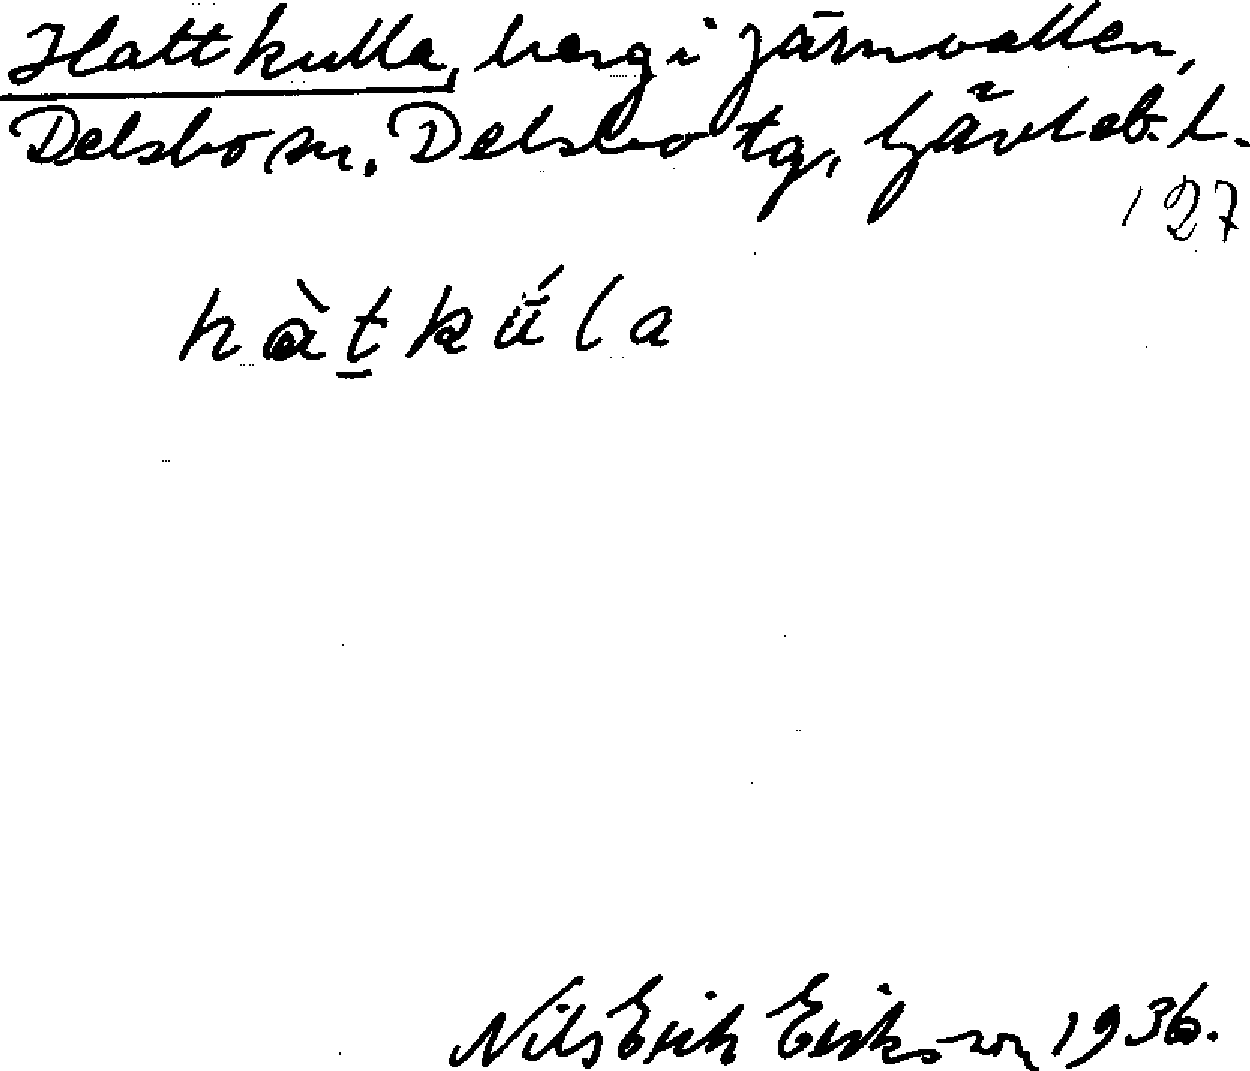 Hattkulla, berg i Järnvallen,
Delsbo sn. Delsbo tg, Gävleb. l.
127
hàt̲kúla
Nils Erik Eriksson 1936.